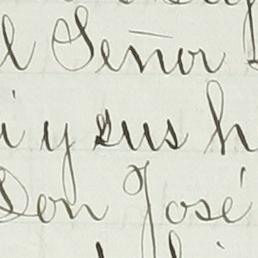 l Señor
i y sus h
Don José